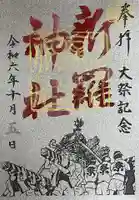 奉拝 大祭記念
新羅
神社
令和六年十月五日